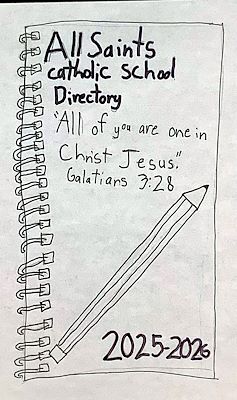 All Saints
catholic School
Directory
"All of you are one in
Christ Jesus."
Galatians 3:28
2025-2026